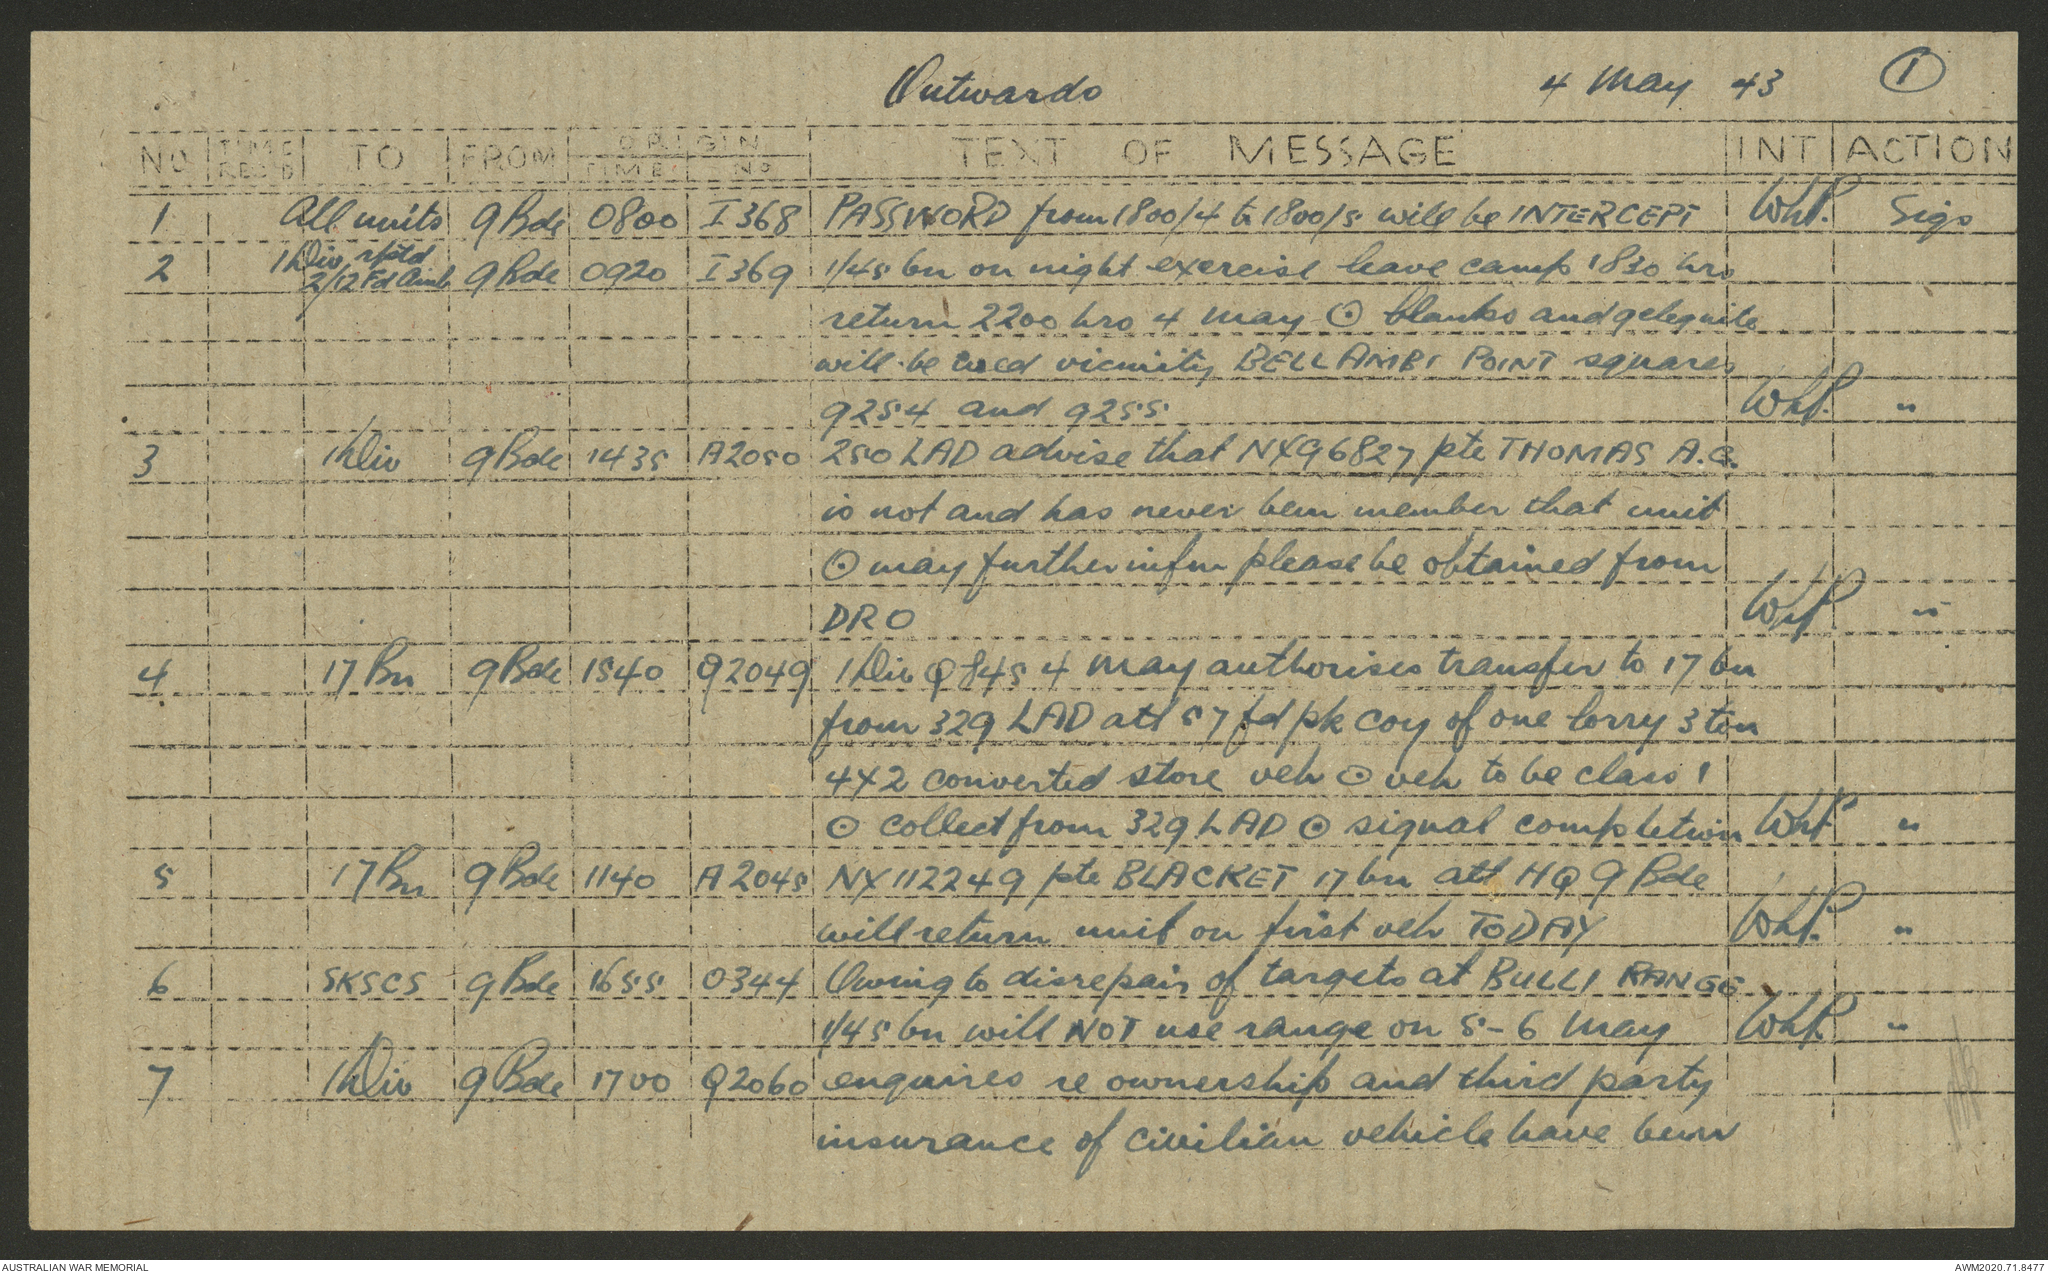 Outwards 4 May 43 1
NO TIME REC'D TO FROM ORIGIN TIME NO TEXT OF MESSAGE INT ACTION
1 All units 9 Bde 0800 I 368 PASSWORD from 1800/4 to 1800/5 will be INTERCEPT WhP. Sigs
2 1 Div rptd 2/12 Fd Amb 9 Bde 0920 I 369 1/45 bn on night exercise leave camp 1830 hrs
return 2200 hrs 4 May ⊙ blanks and gelignite
will be used vicinity BELLAMBI POINT squares
9254 and 9255 WhP. "
3 1 Div 9 Bde 1435 A2050 250 LAD advise that NX96827 pte THOMAS A.G.
is not and has never been member that unit
⊙ may further infm please be obtained from
DRO WhP "
4 17 Bn 9 Bde 1540 Q2049 1 Div Q845 4 May authorises transfer to 17 bn
from 329 LAD att 57 fd pk coy of one lorry 3 ton
4X2 converted store veh ⊙ veh to be class 1
⊙ collect from 329 LAD ⊙ signal completion WhP "
5 17 Bn 9 Bde 1140 A 2045 NX112249 pte BLACKET 17 bn att HQ 9 Bde
will return unit on first veh TODAY WhP. "
6 SKSCS 9 Bde 1655 O344 Owing to disrepair of targets at BULLI RANGE
1/45 bn will NOT use range on 5-6 May WhP. "
7 1 Div 9 Bde 1700 Q2060 enquires re ownership and third party
insurance of civilian vehicle have been
AUSTRALIAN WAR MEMORIAL AWM2020.71.8477